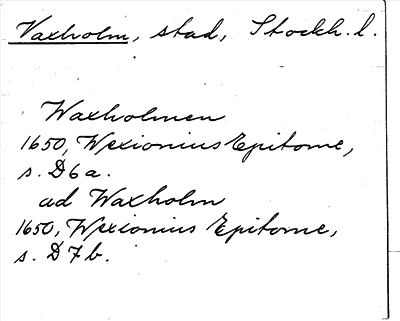 Vaxholm, stad, Stockh. l.
Waxholmen
1650, Wexionius Epitome,
s. D6a.
ad Waxholm
1650, Wexionius Epitome,
s. D7b.